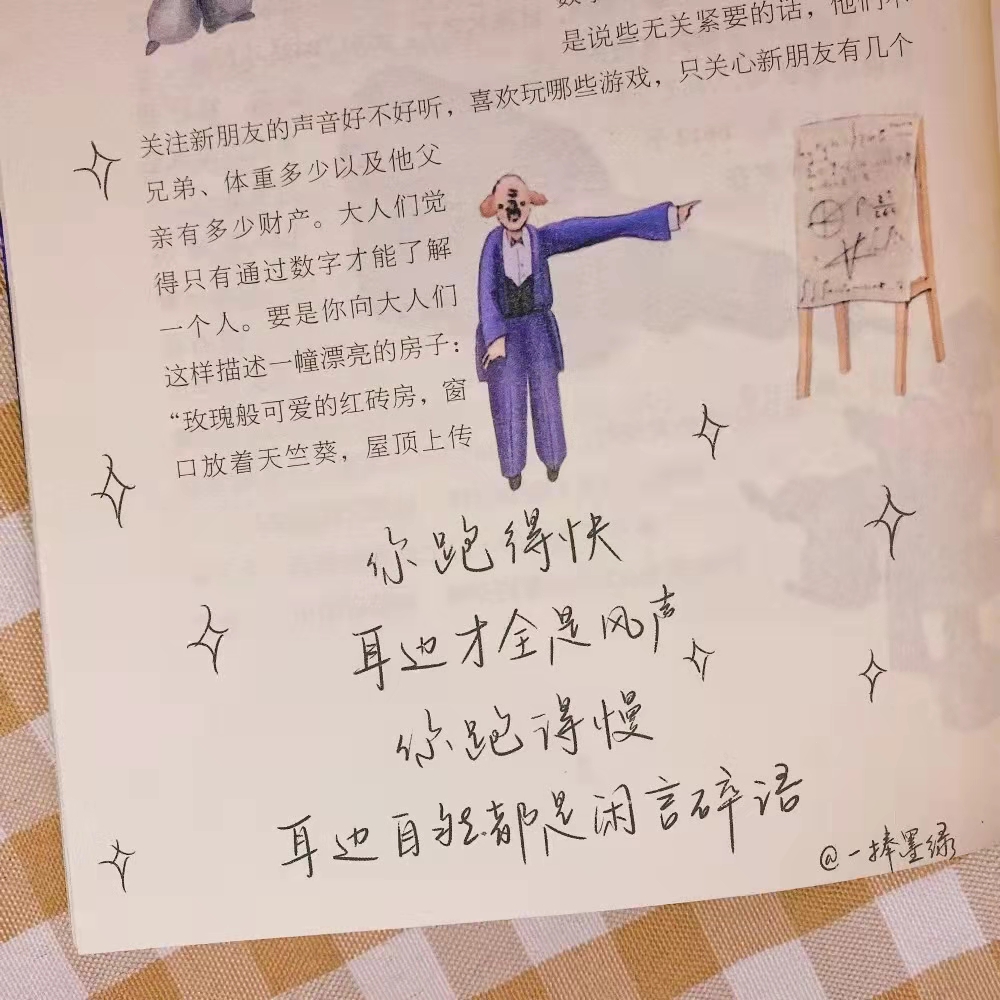 是说些无关紧要的话，他们不
关注新朋友的声音好不好听，喜欢玩哪些游戏，只关心新朋友有几个
兄弟、体重多少以及他父
亲有多少财产。大人们觉
得只有通过数字才能了解
一个人。要是你向大人们
这样描述一幢漂亮的房子：
“玫瑰般可爱的红砖房，窗
口放着天竺葵，屋顶上传
你跑得快
耳边才全是风声
你跑得慢
耳边自然都是闲言碎语
@一捧墨绿